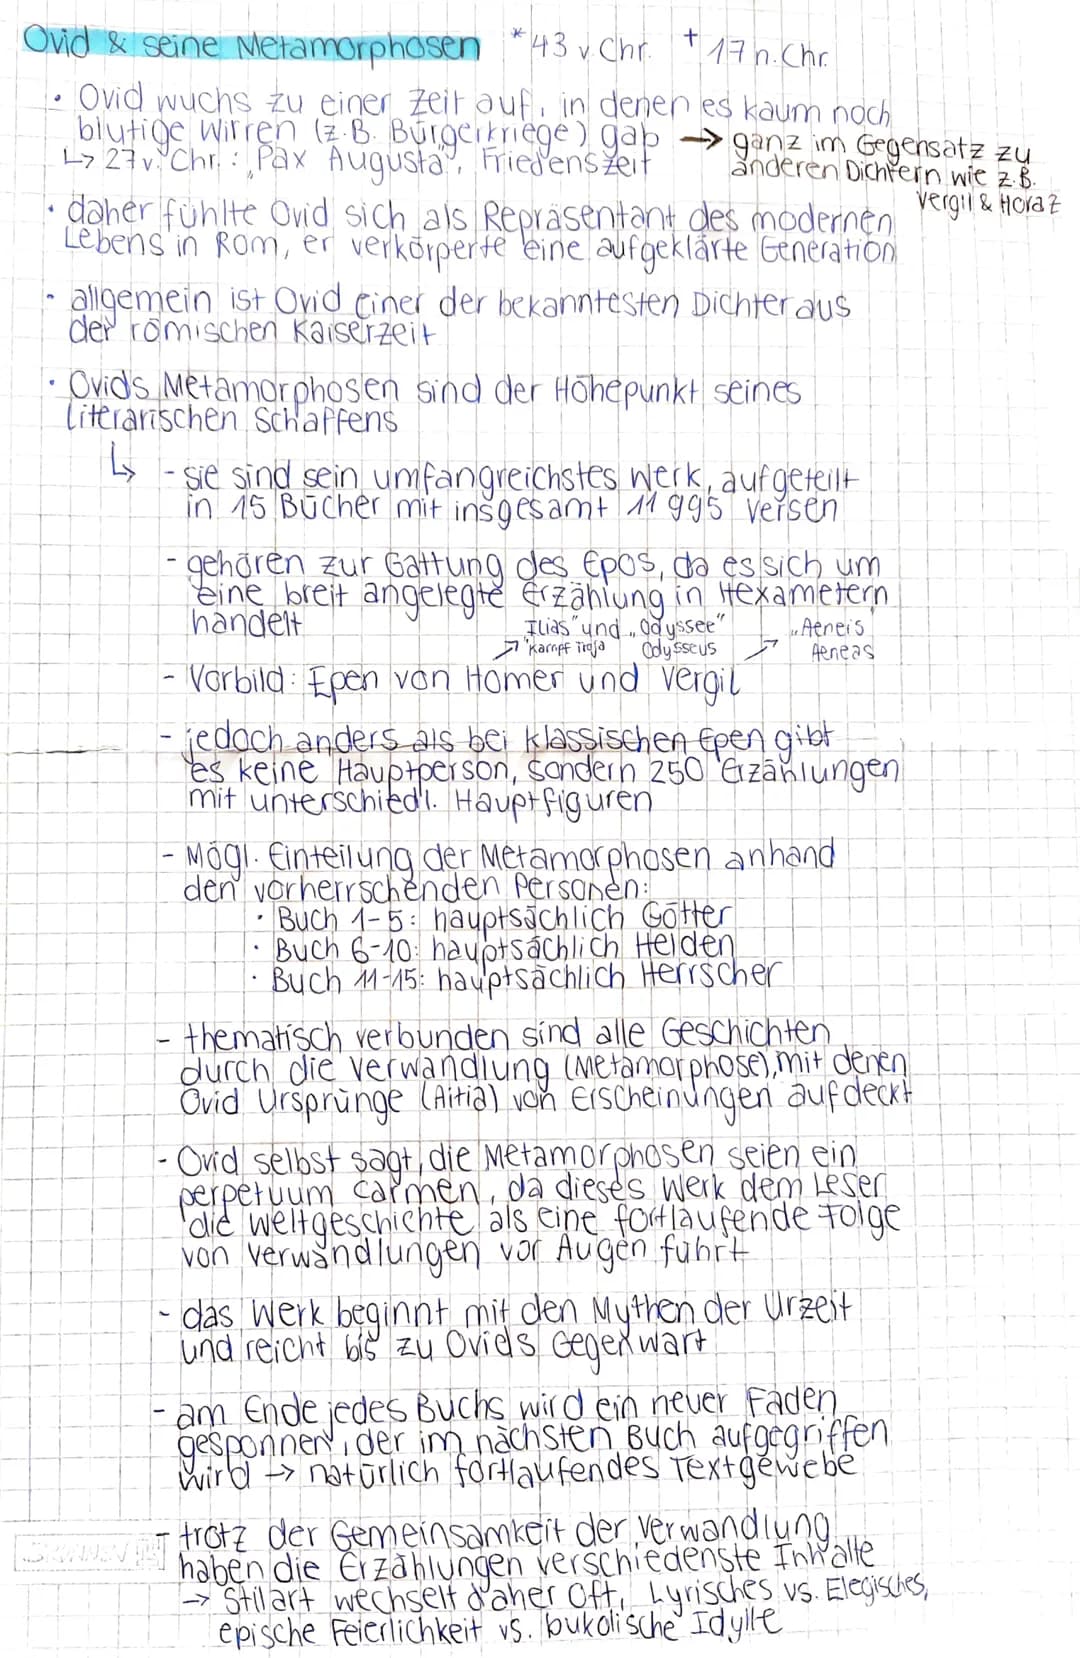 Ovid & seine Metamorphosen *43 v. Chr. † 17 n. Chr.
• Ovid wuchs zu einer Zeit auf, in denen es kaum noch
blutige Wirren (z.B. Bürgerkriege) gab → ganz im Gegensatz zu
↳ 27 v. Chr.: „Pax Augusta", Friedenszeit anderen Dichtern wie z.B.
Vergil & Horaz
• daher fühlte Ovid sich als Repräsentant des modernen
Lebens in Rom, er verkörperte eine aufgeklärte Generation
• allgemein ist Ovid einer der bekanntesten Dichter aus
der römischen Kaiserzeit
• Ovids Metamorphosen sind der Höhepunkt seines
literarischen Schaffens
↳ - sie sind sein umfangreichstes Werk, aufgeteilt
in 15 Bücher mit insgesamt 11 995 Versen
- gehören zur Gattung des Epos, da es sich um
eine breit angelegte Erzählung in Hexametern
handelt
Ilias" und „Odyssee" „Aeneis
↗ Kampf Troja Odysseus ↗ Aeneas
- Vorbild: Epen von Homer und Vergil
- jedoch anders als bei klassischen Epen gibt
es keine Hauptperson, sondern 250 Erzählungen
mit unterschiedl. Hauptfiguren
- Mögl. Einteilung der Metamorphosen anhand
den vorherrschenden Personen:
• Buch 1-5: hauptsächlich Götter
• Buch 6-10: hauptsächlich Helden
• Buch 11-15: hauptsächlich Herrscher
- thematisch verbunden sind alle Geschichten
durch die Verwandlung (Metamorphose), mit denen
Ovid Ursprünge (Aitia) von Erscheinungen aufdeckt
- Ovid selbst sagt, die Metamorphosen seien ein
perpetuum carmen, da dieses Werk dem Leser
die Weltgeschichte als eine fortlaufende Folge
von Verwandlungen vor Augen führt
- das Werk beginnt mit den Mythen der Urzeit
und reicht bis zu Ovids Gegenwart
- am Ende jedes Buchs wird ein neuer Faden
gesponnen, der im nächsten Buch aufgegriffen
wird → natürlich fortlaufendes Textgewebe
- trotz der Gemeinsamkeit der Verwandlung
haben die Erzählungen verschiedenste Inhalte
→ Stilart wechselt daher oft, Lyrisches vs. Elegisches,
epische Feierlichkeit vs. bukolische Idylle